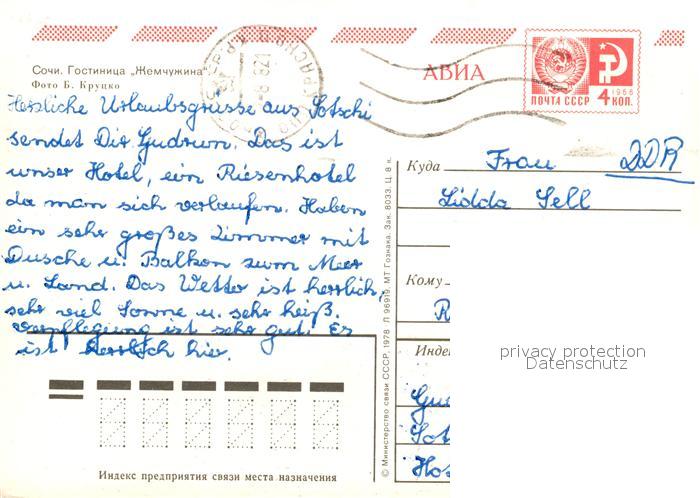 АВИА
ПОЧТА СССР
1966
4 КОП.
Сочи. Гостиница „Жемчужина“
Фото Б. Круцко
Herzliche Urlaubsgrüsse aus Sotschi
sendet Dir Gudrun. Das ist
unser Hotel, ein Riesenhotel
da man sich verlaufen. Haben
ein sehr großes Zimmer mit
Dusche u. Balkon zum Meer
u. Land. Das Wetter ist herrlich,
sehr viel Sonne u. sehr heiß.
Verpflegung ist sehr gut. Es
ist herrlich hier.
Индекс предприятия связи места назначения
© Министерство связи СССР, 1978 Л 96919. МТ Гознака. Зак. 8033. Ц. 8 к.
Куда Frau DDR
Lidda Sell
Кому
R
Инде
Gu
Sot
Hos
privacy protection
Datenschutz